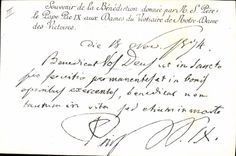 Souvenir de la Bénédiction donnée par N. S. Père
le Pape Pie IX aux Dames du Vestiaire de Notre-Dame
des Victoires.
die 18 nov. 1874.
Benedicat Vos Deus et in sancto
permanentes in bonis
operibus exercentes, benedicat non
tantum in vita sed etiam in morte
Pius P. IX.